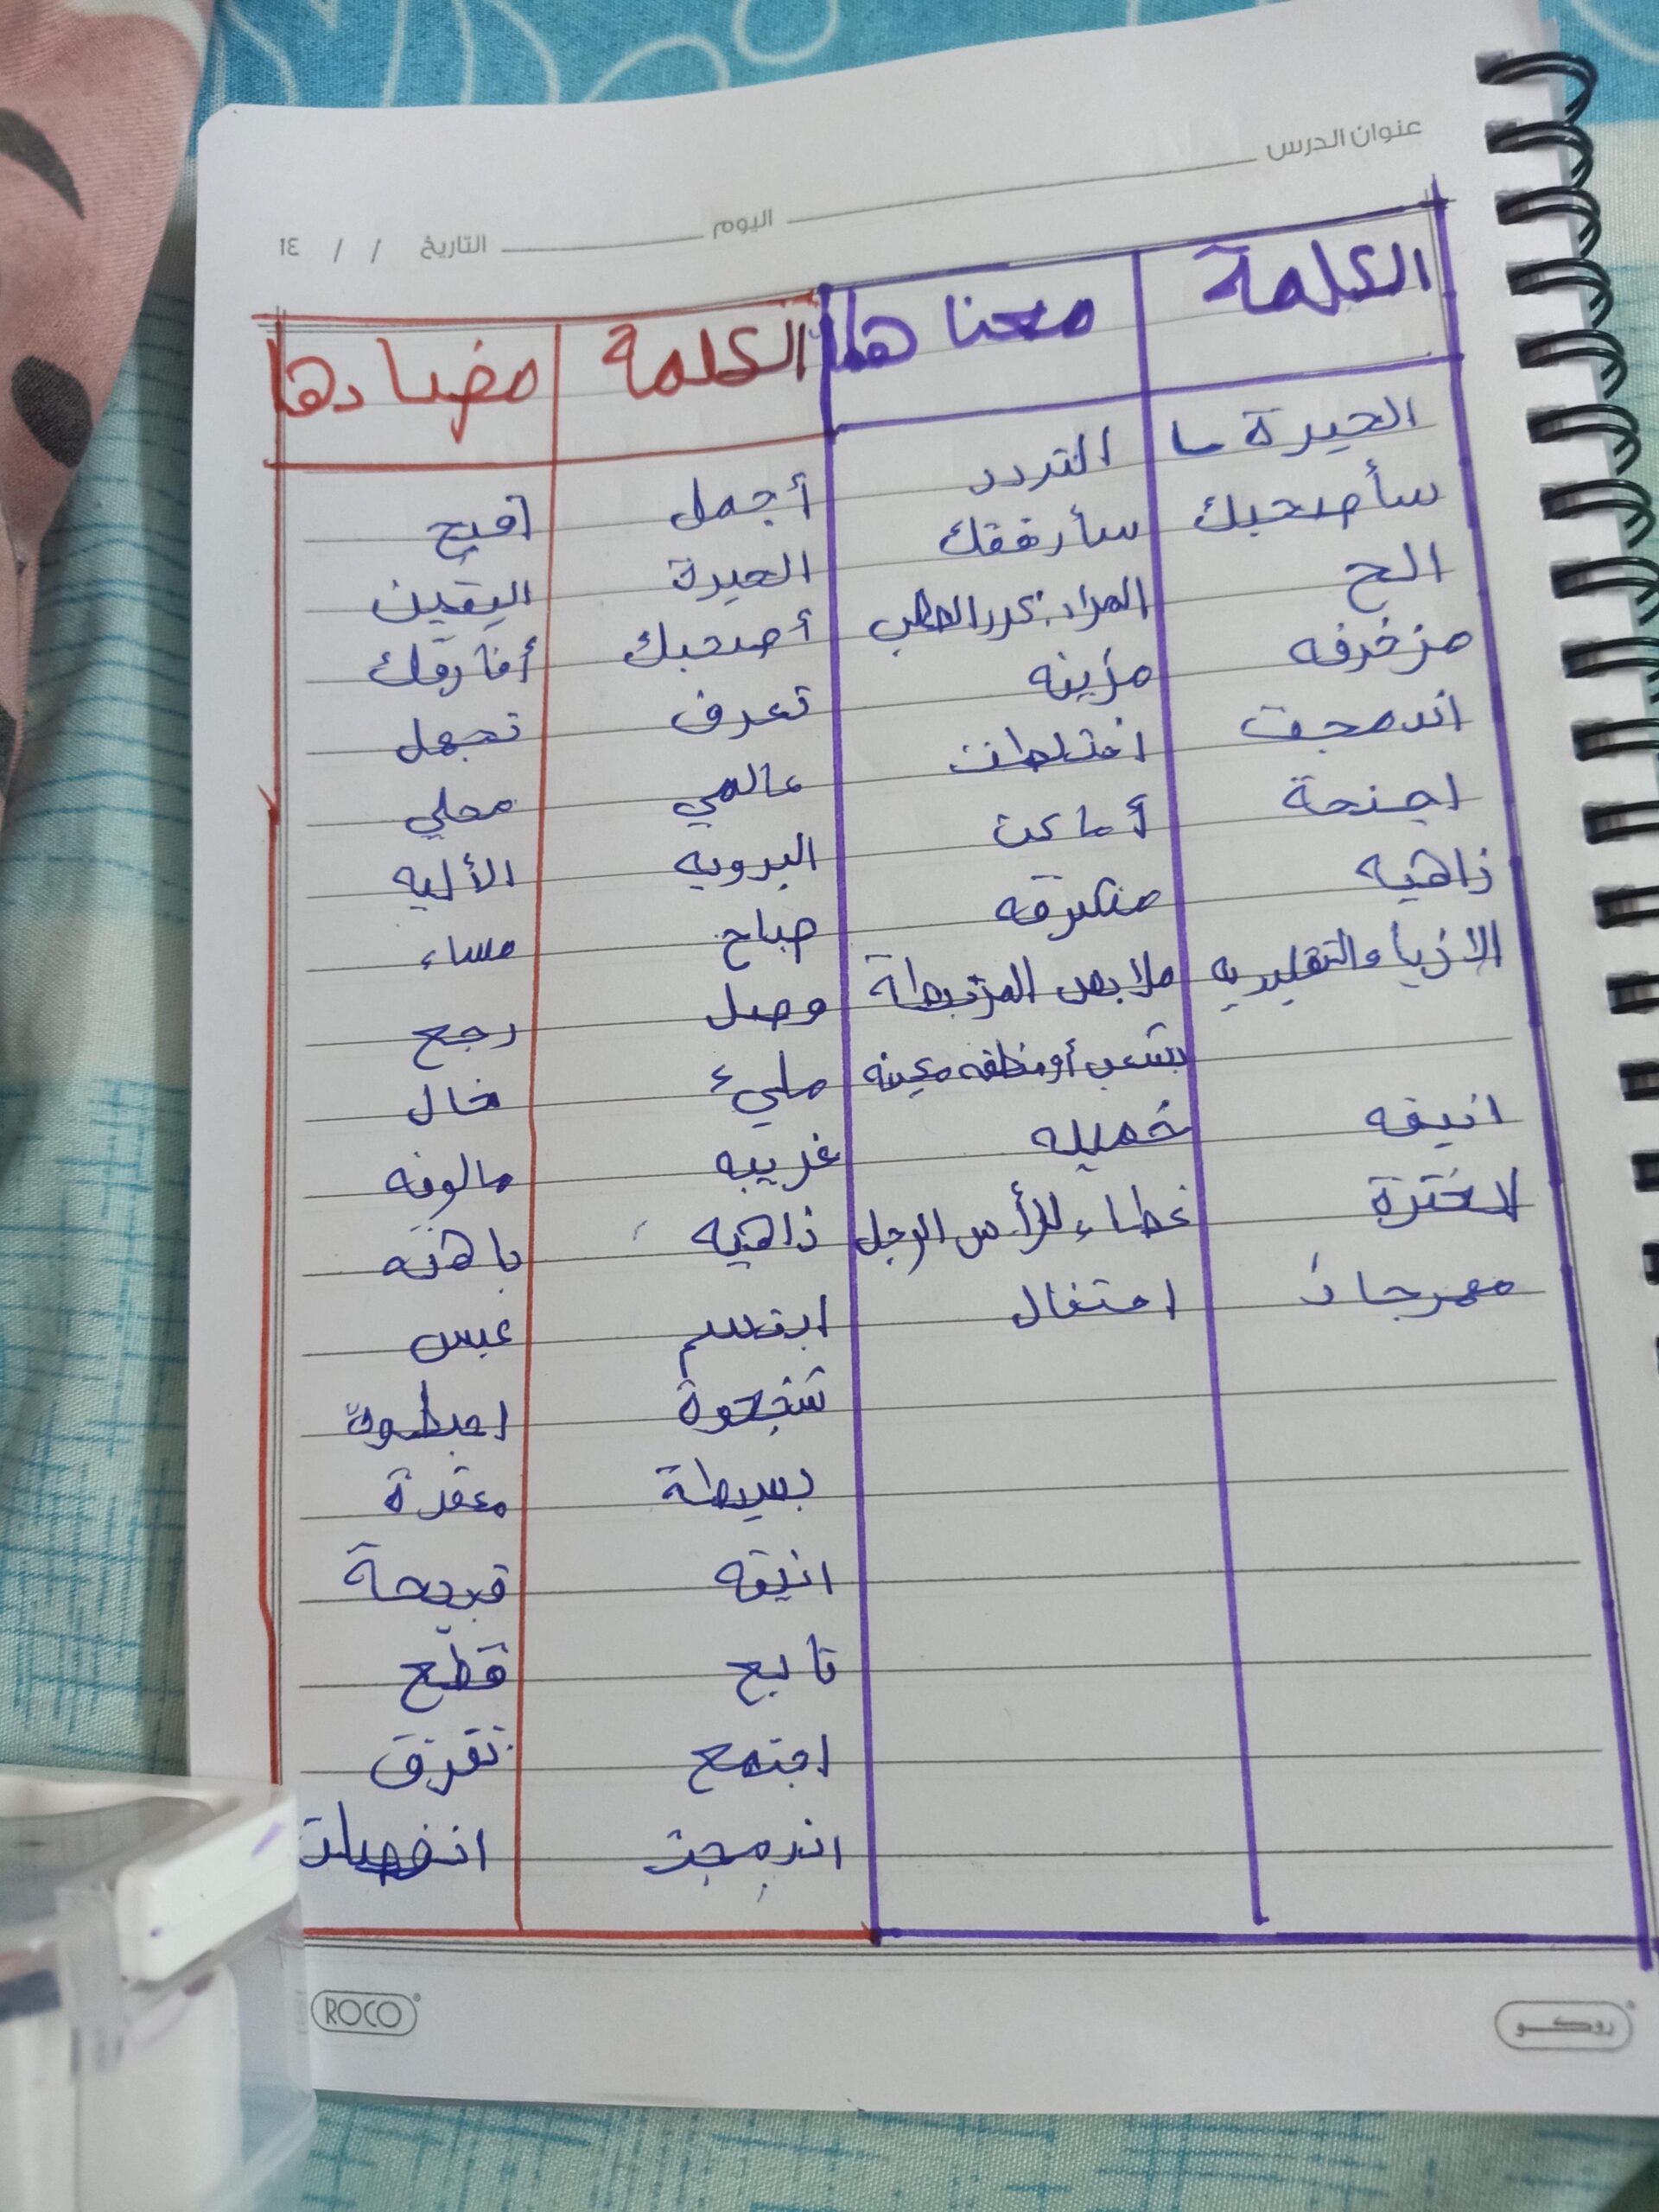 عنوان الدرس
اليوم التاريخ / / ١٤
الكلمة معناها الكلمة مضادها
الحيرة التردد
سأصحبك سأرفقك
الح المراد: كرر الطلب
مزخرفه مزينه
اندمجت اختلطت
اجنحة أماكن
زاهيه
الازياء والتقليديه ملابس المرتبطة
بشعب أو منطقه معينه
انيقه جميله
غطاء للرأس الرجل
مهرجان احتفال
أجمل أقبح
الحيرة اليقين
أصحبك أفارقك
تعرف تجهل
عالمي محلي
اليدويه الأليه
صباح مساء
وصل رجع
مليء خال
غريبه مالوفه
زاهيه باهته
ابتسم عبس
بسيطة معقدة
انيقه قبيحة
تابع قطع
اجتمع تفرق
اندمجت انفصلت
ROCO
روكو